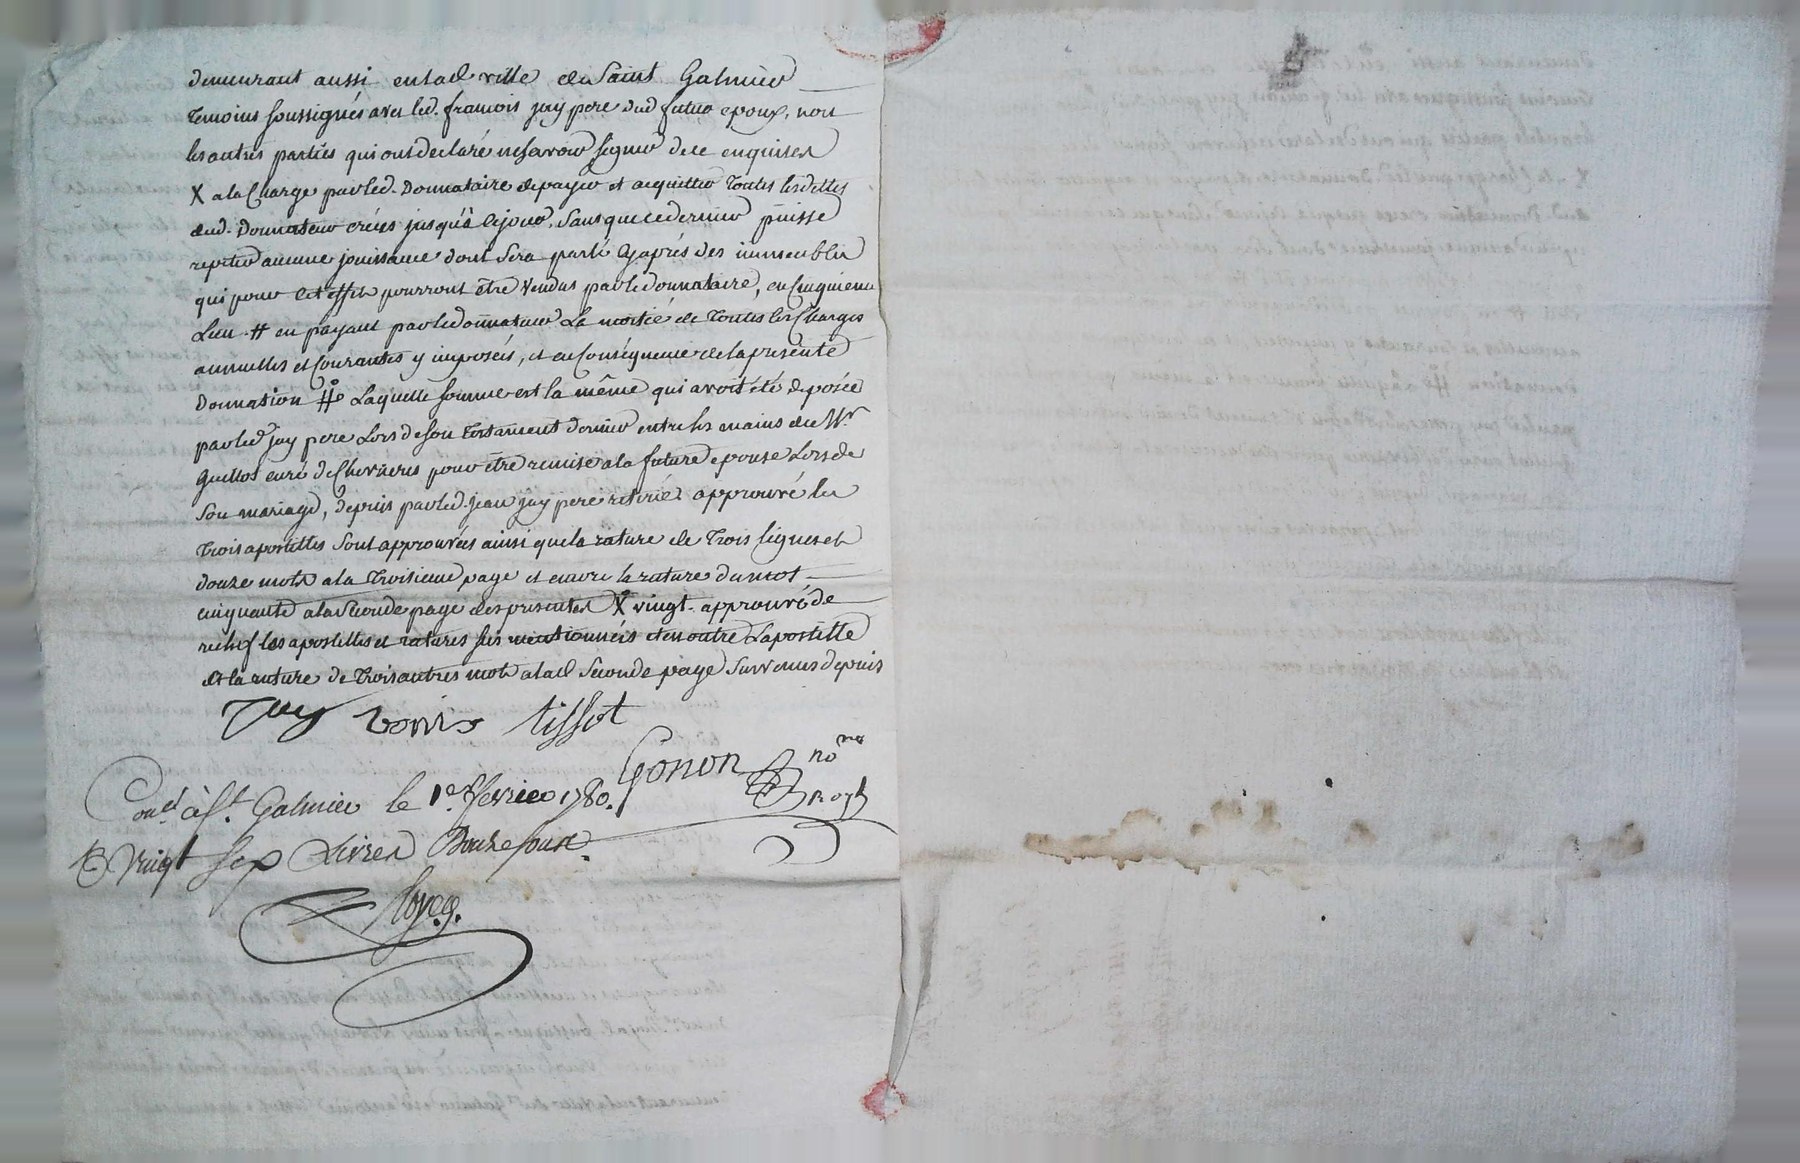 demeurant aussi en lad ville de Saint Galmier
Temoins soussignés avec led. francois jay pere dud futur epoux, non
les autres parties qui ont declaré ne savoir signer de ce enquises
X a la Charge par led. Donnataire de payer et acquitter Toutes les dettes
dud. Donnateur crées jusqu'à ce jour, sans que ce dernier puisse
repeter aucune jouissance dont sera parlé cy après des immeubles
qui pour cet effet pourront être vendus par le donnataire, en Cinquieme
Lieu # en payant par le donnateur La moitié de Toutes les Charges
annuelles et Courantes y imposées, et en Conséquence de la presente
Donnation # Laquelle somme est la même qui avoit été deposée
par led jay pere Lors de son Testament dernier entre les mains de Mr
Guillot curé de Chevrieres pour être remise a la future epouse Lors de
son mariage, depuis par led. jean jay pere retirée approuvé les
Trois apostilles sont approuvées ainsi que la rature de Trois lignes et
douze mots a la Troisieme page et encore la rature du mot
cinquante a la Seconde page des presentes X vingt. approuvé de
rechef les apostilles et ratures sus mentionnées et en outre L'apostille
et la rature de Trois autres mots a lad Seconde page survenus depuis
Jay tissot
Gonon no re
Roy l
Con.lé à St. Galmier le 1er. fevrier 1780.
R vingt sep Livres Douze sous.